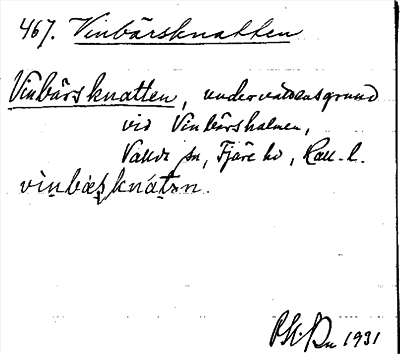 467. Vinbärsknatten
Vinbärsknatten, undervattensgrund
vid Vinbärsholmen,
Vallda sn, Fjäre hd, Hall. l.
vìnbæʂknátən.
1931